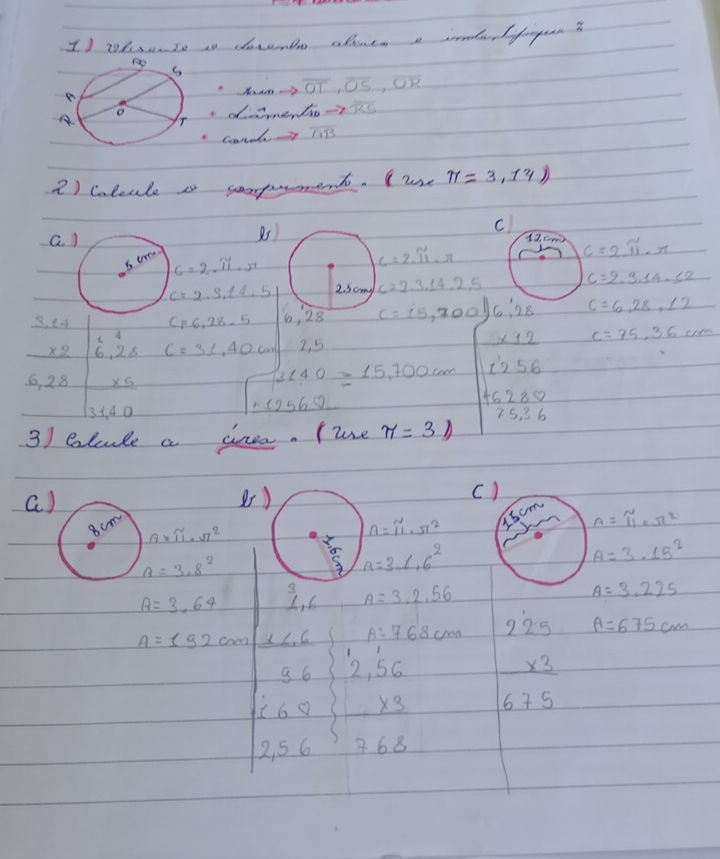 1) Observe o desenho abaixo e indantifique:
B S
A
R O T
• raio → OT, OS, OR
• diâmentro → RS
• corda → AB
2) Calcule o comprimento. (use π = 3,14)
a) b) c)
5 cm
C = 2.π.r
C = 2.3,14.5
C = 6,28.5
C = 31,40 cm
3,14
x2
6,28
6,28
x5
31,40
2,5cm
C = 2.π.r
C = 2.3,14.2,5
C = 15,700
6,28
2,5
3140 = 15,700cm
+1256
12cm
C = 2.π.r
C = 2.3,14.12
C = 6,28.12
C = 75,36 cm
6,28
x12
1256
+628
75,36
3) Calcule a área. (Use π = 3)
a) b) c)
8cm
A = π.r²
A = 3.8²
A = 3.64
A = 192 cm
1,6cm
A = π.r²
A = 3.1,6²
A = 3.2,56
A = 768cm
1,6
x1,6
96
160
2,56
2,56
x3
768
15cm
A = π.r²
A = 3.15²
A = 3.225
A = 675 cm
225
x3
675